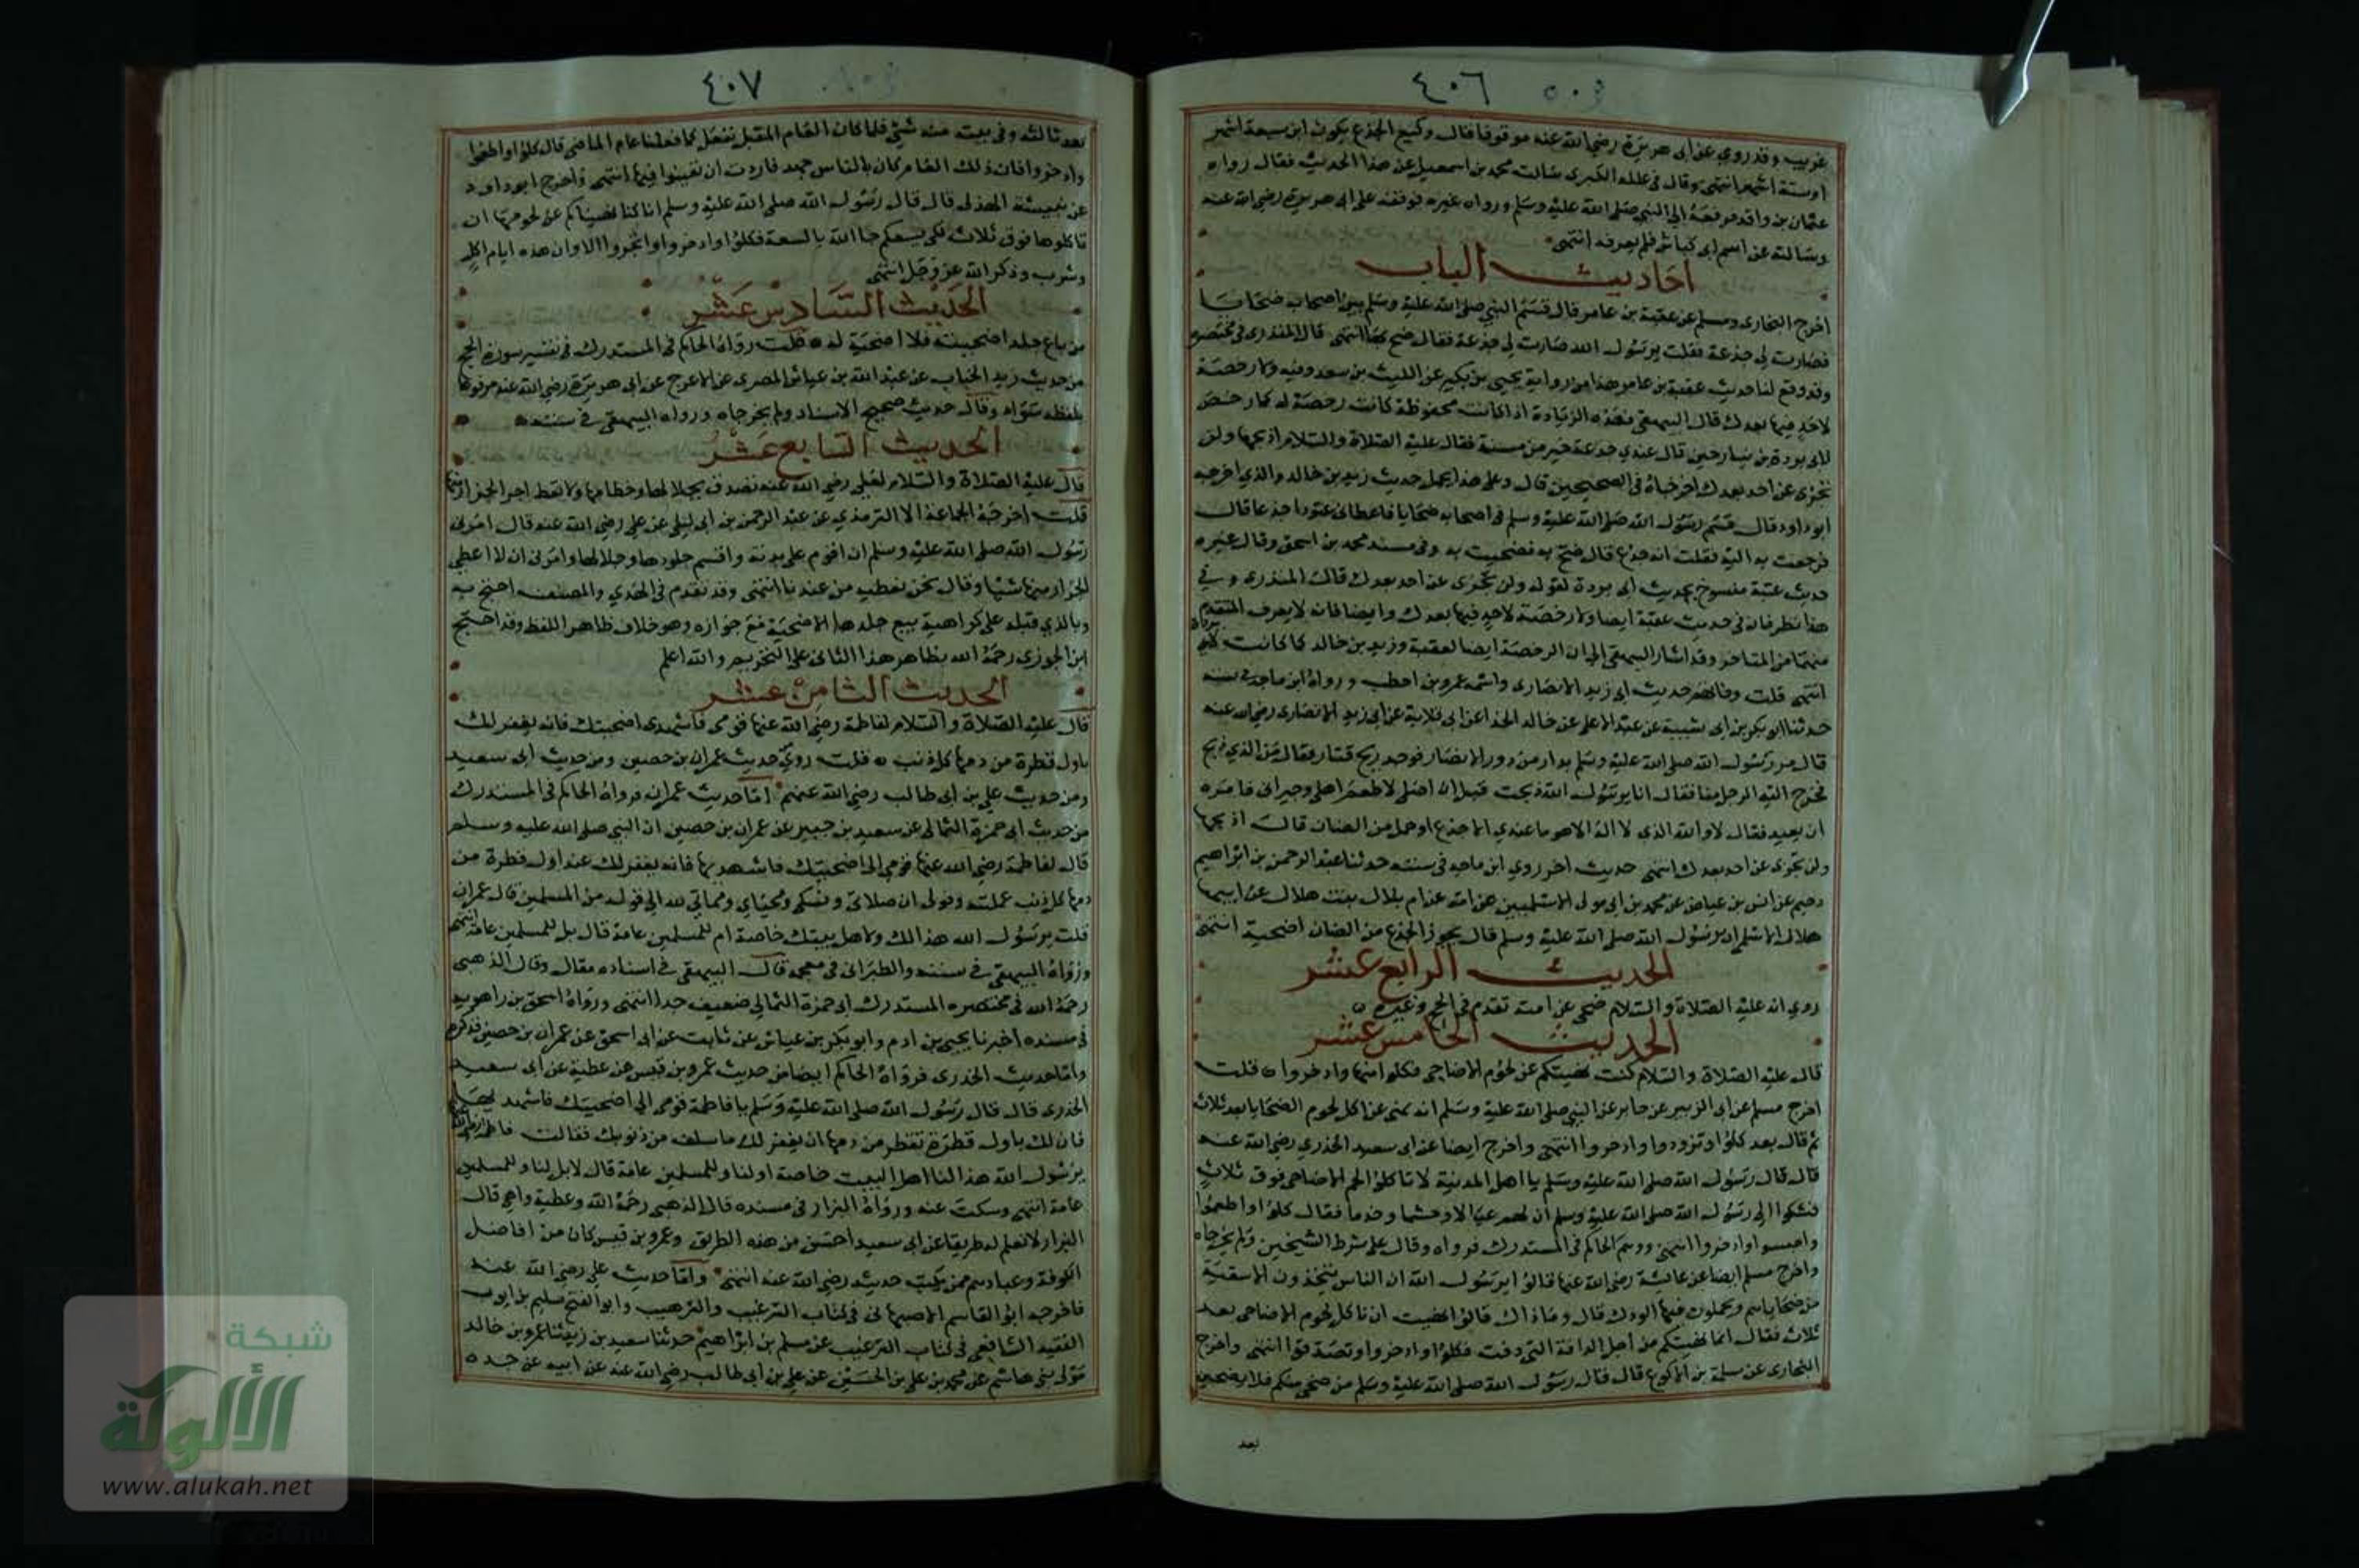 ٤٠٦
غريب وقد روي عن ابى هريرة رضي الله عنه موقوفا فقال وكيع الجذع يكون ابن سبعة اشهر
اوستة اشهر انتهى وقال في علله الكبرى سالت محمد بن اسمعيل عن هذا الحديث فقال رواه
عثمان بن واقد فرفعه الى النبي صلى الله عليه وسلم ورواه غيره فوقفه على ابى هريرة رضي الله عنه
وسالته عن اسم ابى كباش فلم يعرفه انتهى
احاديث الباب
اخرج البخارى ومسلم عن عقبة بن عامر قال قسم النبي صلى الله عليه وسلم بين اصحابه ضحايا
فصارت لي جذعة فقلت يرسول الله صارت لي جذعة فقال ضح بها انتهى قال المنذرى في مختصره
وقد وقع لنا حديث عقبة بن عامر هذا من رواية يحيى بن بكير عن الليث بن سعد وفيه ولا رخصة
لاحد فيها بعدك قال البيهقي فهذه الزيادة اذا كانت محفوظة كانت رخصة له كما رخص
لابى بردة بن نيار حين قال عندي جذعة خير من مسنة فقال عليه الصلاة والسلام اذبحها ولن
تجزى عن احد بعدك اخرجاه في الصحيحين قال وعلى هذا يحمل حديث زيد بن خالد والذي اخرجه
ابو داود قال قسم رسول الله صلى الله عليه وسلم في اصحابه ضحايا فاعطانى عتودا جذعا قال
فرجعت به اليه فقلت انه جذع قال ضح به فضحيت به وفي مسند محمد بن اسحق وقال غيره
حديث عقبة منسوخ بحديث ابى بردة لقوله ولن تجزى عن احد بعدك قال المنذرى وفي
هذا نظر فان في حديث عقبة ايضا ولا رخصة لاحد فيها بعدك وايضا فانه لا يعرف المتقدم
منهما من المتاخر وقد اشار البيهقي الى ان الرخصة ايضا لعقبة وزيد بن خالد كما كانت لابى بردة
انتهى قلت ومنهم حديث ابى زيد الانصارى واسمه عمرو بن اخطب ورواه ابن ماجه في سننه
حدثنا ابو بكر بن ابى شيبة عن عبد الاعلى عن خالد الحذا عن ابى قلابة عن ابى زيد الانصارى رضي الله عنه
قال مر رسول الله صلى الله عليه وسلم بدار من دور الانصار فوجد ريح قتار فقال من الذي ذبح
فخرج اليه الرجل منا فقال انا يرسول الله ذبحت قبل ان اصلى لاطعم اهلى وجيرانى فامره
ان يعيد فقال لا والله الذي لا اله الا هو ما عندي الا جذع او حمل من الضان قال اذبحها
ولن تجزى عن احد بعدك انتهى حديث اخر روي ابن ماجه في سننه حدثنا عبد الرحمن بن ابراهيم
دحيم عن انس بن عياض عن محمد بن ابى مولى الاسلميين عن امه عن ام بلال بنت هلال عن ابيها
هلال الاسلم ان رسول الله صلى الله عليه وسلم قال يجوز الجذع من الضان اضحية انتهى
الحديث الرابع عشر
روي انه عليه الصلاة والسلام ضحى عن امته تقدم في الحج وغيره
الحديث الخامس عشر
قال عليه الصلاة والسلام كنت نهيتكم عن لحوم الاضاحى فكلوا منها وادخروا قلت
اخرج مسلم عن ابى الزبير عن جابر عن النبي صلى الله عليه وسلم انه نهى عن اكل لحوم الضحايا بعد ثلاث
ثم قال بعد كلوا وتزودوا وادخروا انتهى واخرج ايضا عن ابى سعيد الخدري رضي الله عنه
قال قال رسول الله صلى الله عليه وسلم يا اهل المدينة لا تاكلوا لحم الاضاحى فوق ثلاث
فشكوا الى رسول الله صلى الله عليه وسلم ان لهم عيالا وحشما وخدما فقال كلوا واطعموا
واحبسوا وادخروا انتهى ووهم الحاكم في المستدرك فرواه وقال على شرط الشيخين ولم يخرجاه
واخرج مسلم ايضا عن عائشة رضي الله عنها قالوا يرسول الله ان الناس يتخذون الاسقية
من ضحاياهم ويحملون فيها الودك قال وما ذاك قالوا نهيت ان ناكل لحوم الاضاحى بعد
ثلاث فقال انما نهيتكم من اجل الدافة التي دفت فكلوا وادخروا وتصدقوا انتهى واخرج
البخارى عن سلمة بن الاكوع قال قال رسول الله صلى الله عليه وسلم من ضحى منكم فلا يصبحن
بعد
٤٠٧
بعد ثالثة وفي بيته منه شئ فلما كان العام المقبل نفعل كما فعلنا عام الماضى قال كلوا واطعموا
وادخروا فان ذلك العام كان بالناس جهد فاردت ان تعينوا فيها انتهى واخرج ابو داود
عن نبيشة الهذلى قال قال رسول الله صلى الله عليه وسلم انا كنا نهيناكم عن لحومها ان
تاكلوها فوق ثلاث لكى يسعكم جا الله بالسعة فكلوا وادخروا واتجروا الا وان هذه ايام اكل
وشرب وذكر الله عز وجل انتهى
الحديث السادس عشر
من باع جلد اضحيته فلا اضحية له قلت رواه الحاكم في المستدرك في تفسير سورة الحج
من حديث زيد الحباب عن عبد الله بن عياش المصرى عن الاعرج عن ابى هريرة رضي الله عنه مرفوعا
بلفظه سواء وقال حديث صحيح الاسناد ولم يخرجاه ورواه البيهقي في سننه
الحديث السابع عشر
قال عليه الصلاة والسلام لعلى رضي الله عنه تصدق بجلالها وخطامها ولا تعط اجر الجزار منها
قلت اخرجه الجماعة الا الترمذي عن عبد الرحمن بن ابى ليلى عن علي رضي الله عنه قال امرنى
رسول الله صلى الله عليه وسلم ان اقوم على بدنه واقسم جلودها وجلالها وامرنى ان لا اعطى
الجزار منها شيا وقال نحن نعطيه من عندنا انتهى وقد تقدم في الهدي والمصنف احتج به
وبالذي قبله على كراهية بيع جلدها الاضحية مع جوازه وهو خلاف ظاهر اللفظ وقد احتج
ابن الجوزي رحمه الله بظاهر هذا الثانى على التحريم والله اعلم
الحديث الثامن عشر
قال عليه الصلاة والسلام لفاطمة رضي الله عنها قومى فاشهدى اضحيتك فانه يغفر لك
باول قطرة من دمها كل ذنب قلت روي حديث عمران بن حصين ومن حديث ابى سعيد
ومن حديث علي بن ابى طالب رضي الله عنهم اما حديث عمران فرواه الحاكم في المستدرك
من حديث ابى حمزة الثمالى عن سعيد بن جبير عن عمران بن حصين ان النبي صلى الله عليه وسلم
قال لفاطمة رضي الله عنها قومي الى اضحيتك فاشهديها فانه يغفر لك عند اول قطرة من
دمها كل ذنب عملته وقولى ان صلاتى ونسكى ومحياي ومماتي لله الى قوله من المسلمين قال عمران
قلت يرسول الله هذا لك ولاهل بيتك خاصة ام للمسلمين عامة قال بل للمسلمين عامة انتهى
ورواه البيهقي في سننه والطبرانى في معجمه قال البيهقي في اسناده مقال وقال الذهبى
رحمه الله في مختصره المستدرك ابى حمزة الثمالي ضعيف جدا انتهى ورواه اسحق بن راهويه
في مسنده اخبرنا يحيى بن ادم وابو بكر بن عياش عن ثابت عن ابى اسحق عن عمران بن حصين فذكره
واما حديث الخدرى فرواه الحاكم ايضا من حديث عمرو بن قيس عن عطية عن ابى سعيد
الخدرى قال قال رسول الله صلى الله عليه وسلم يا فاطمة قومى الى اضحيتك فاشهديها
فان لك باول قطرة تقطر من دمها ان يغفر لك ما سلف من ذنوبك فقالت فاطمة
يرسول الله هذا لنا اهل البيت خاصة او لنا وللمسلمين عامة قال لا بل لنا وللمسلمين
عامة انتهى وسكت عنه ورواه البزار في مسنده قال الذهبى رحمه الله وعطية واهى قال
البزار لا نعلم له طريقا عن ابى سعيد احسن من هذه الطريق وعمرو بن قيس كان من افاضل
الكوفة وعبادهم ممن يكتب حديثه رضي الله عنه انتهى واما حديث على رضي الله عنه
فاخرجه ابو القاسم الاصبهانى في كتاب الترغيب والترهيب وابو الفتح سليم بن ايوب
الفقيه الشافعى في كتاب الترغيب عن مسلم بن ابراهيم حدثنا سعيد بن زيد ثنا عمرو بن خالد
مولى بنى هاشم عن محمد بن على بن الحسين عن علي بن ابى طالب رضي الله عنه عن ابيه عن جده
شبكة
الألوكة
www.alukah.net